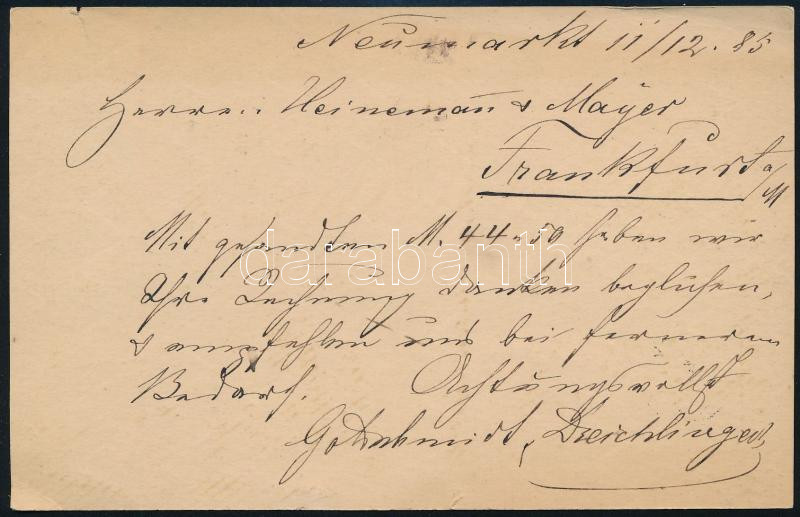 Neumarkt 11/12. 85
Herren Heinemañ & Mayer
Frankfurt a/M
Mit gesandten M. 44.50 haben wir
Ihre Rechnung dankend beglichen,
& empfehlen uns bei fernerem
Bedarf. Achtungsvollst
Goldschmidt, Deichlinger
darabanth